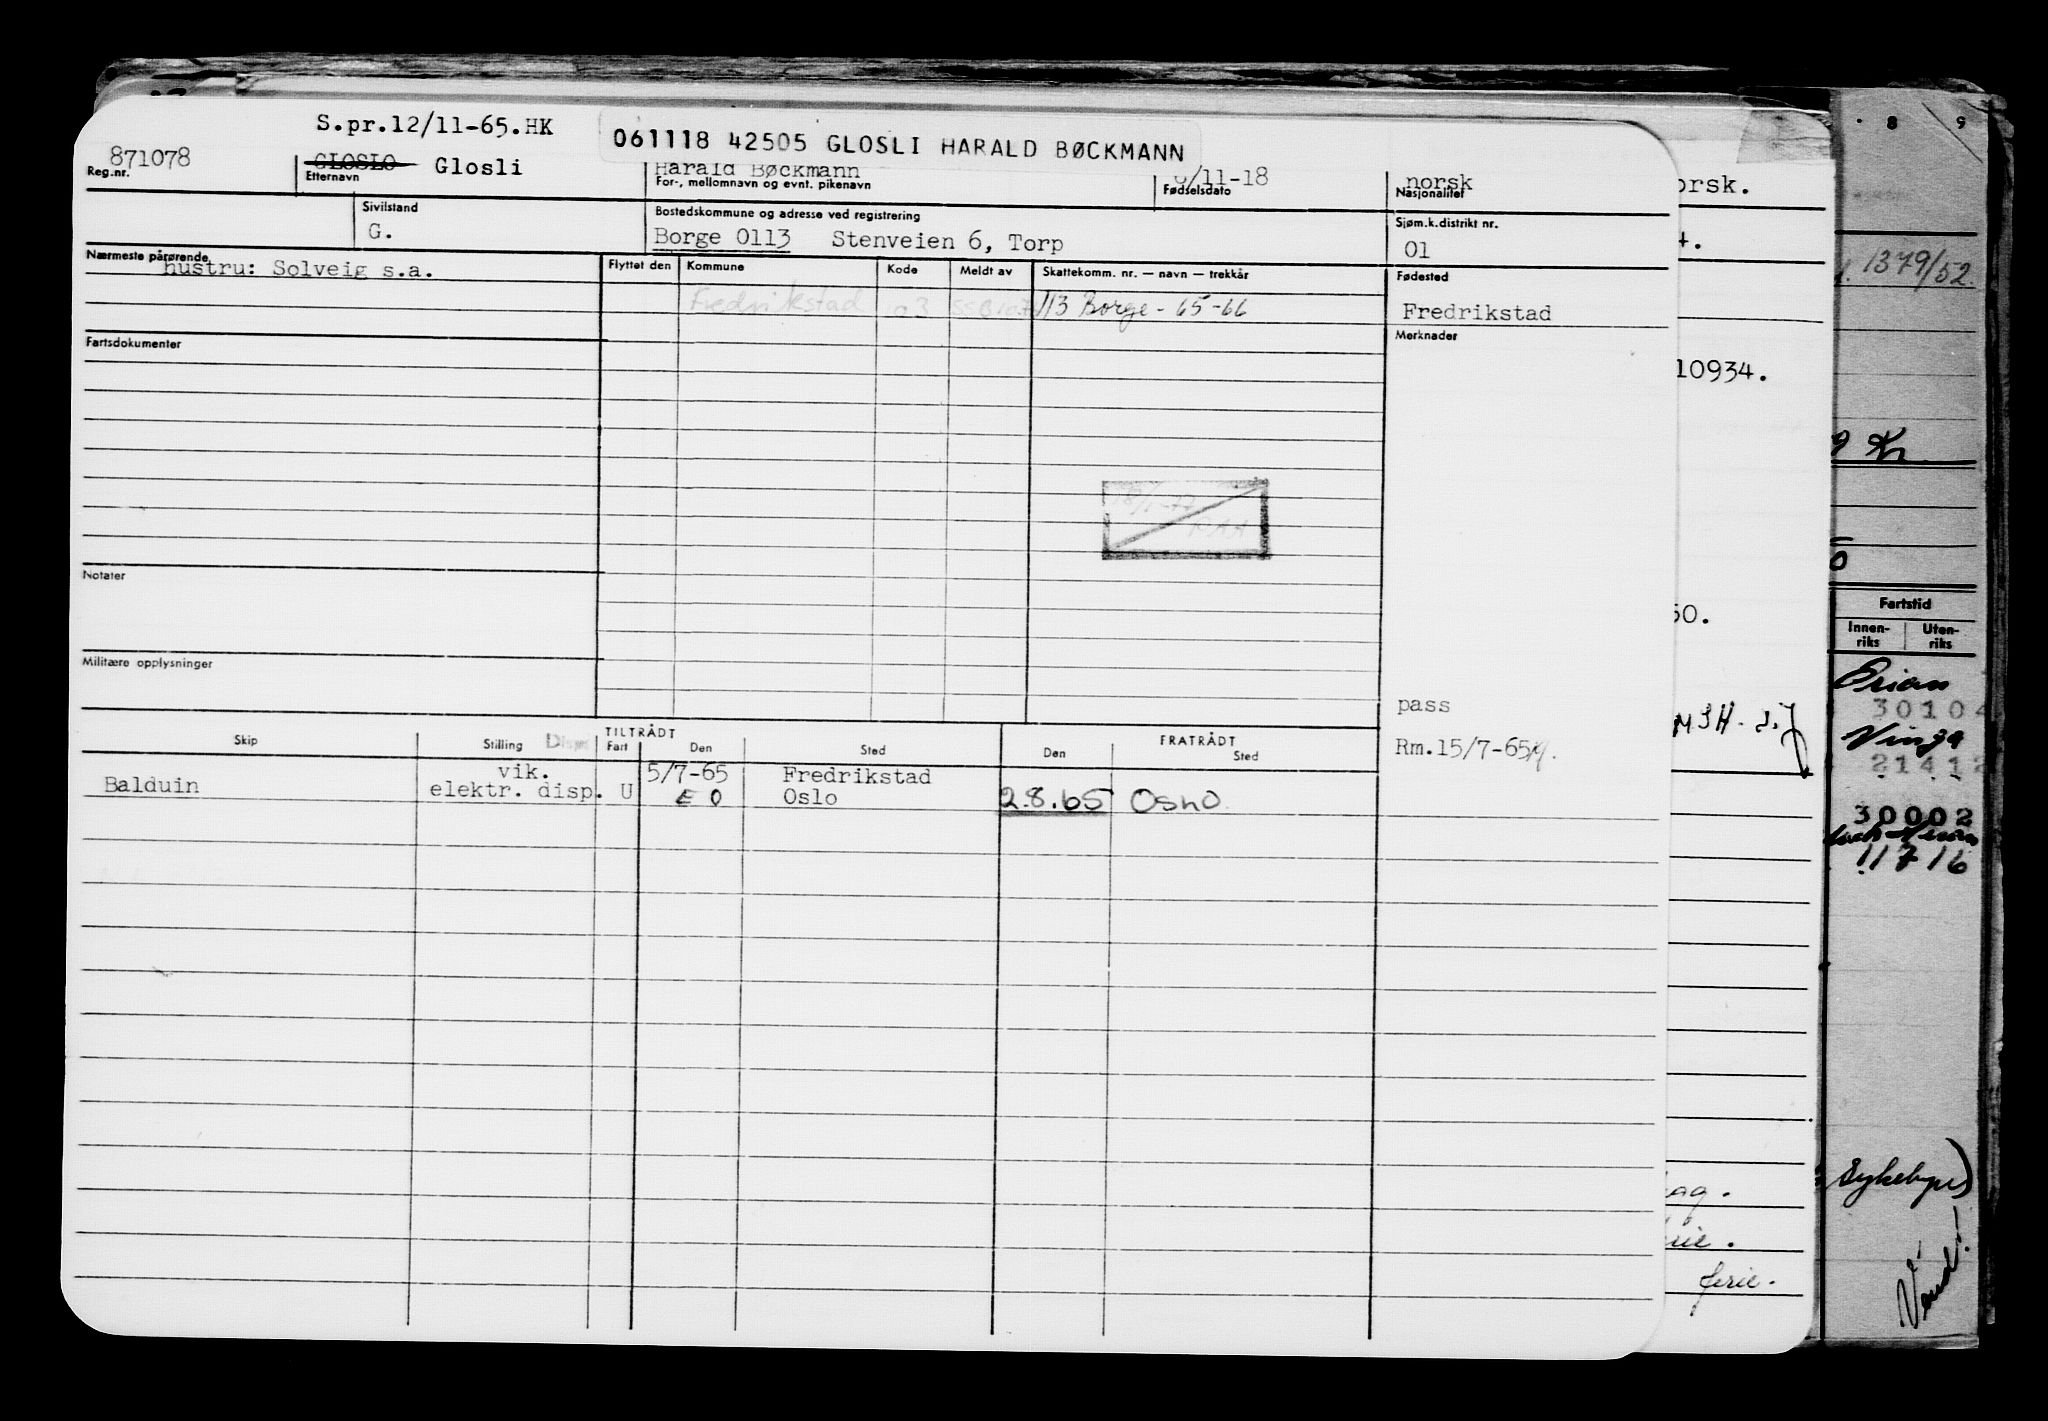 S.pr.12/11-65.HK
061118 42505 GLOSLI HARALD BØCKMANN
871078
Reg.nr.
GLOSLO Glosli
Etternavn
Harald Bøckmann
For-, mellomnavn og evnt. pikenavn
6/11-18
Fødselsdato
norsk
Nasjonalitet
Sivilstand
G.
Bostedskommune og adresse ved registrering
Borge 0113 Stenveien 6, Torp
Sjøm.k.distrikt nr.
01
Nærmeste pårørende
hustru: Solveig s.a.
Flyttet den
Kommune
Kode
Meldt av
Skattekomm. nr. — navn — trekkår
Fredrikstad 03
113 Borge - 65-66
Fødested
Fredrikstad
Fartsdokumenter
Merknader
Notater
Militære opplysninger
pass
Rm.15/7-65
Skip
Stilling
TILTRÅDT
Fart
Den
Sted
FRATRÅDT
Den
Sted
Balduin
vik.
elektr. disp. U
5/7-65 Fredrikstad
E O Oslo
2.8.65 OSLO
orsk.
4.
10934.
50.
MSH
ag.
ferie.
8 9
1379/52.
9 Kr
Fartstid
Innen-
riks
Uten-
riks
Brian
30104
Vinga
21412
30002
11716